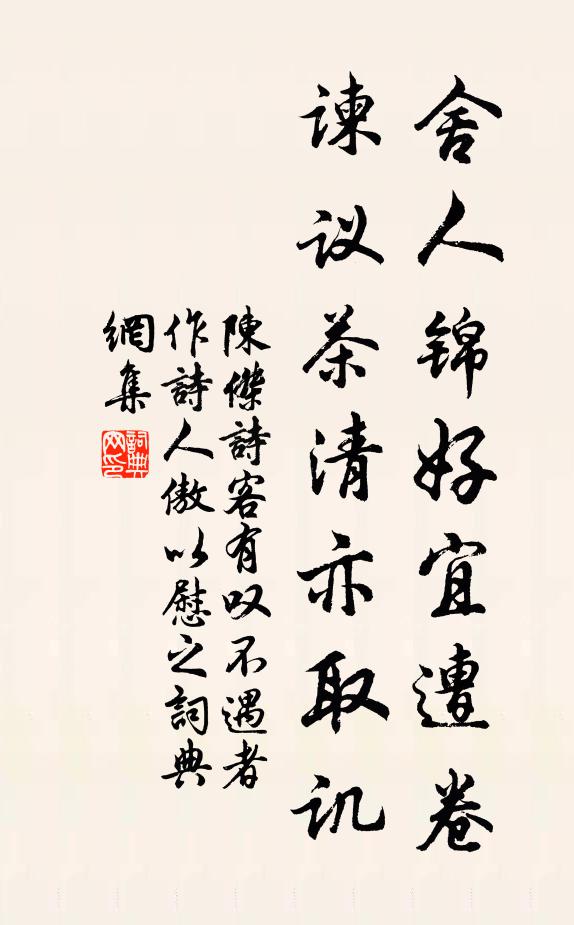 舍人锦好宜遭卷
谏议茶清亦取讥
陳傑詩客有叹不遇者
作詩人傲以慰之詞典
網集
詞典
网印